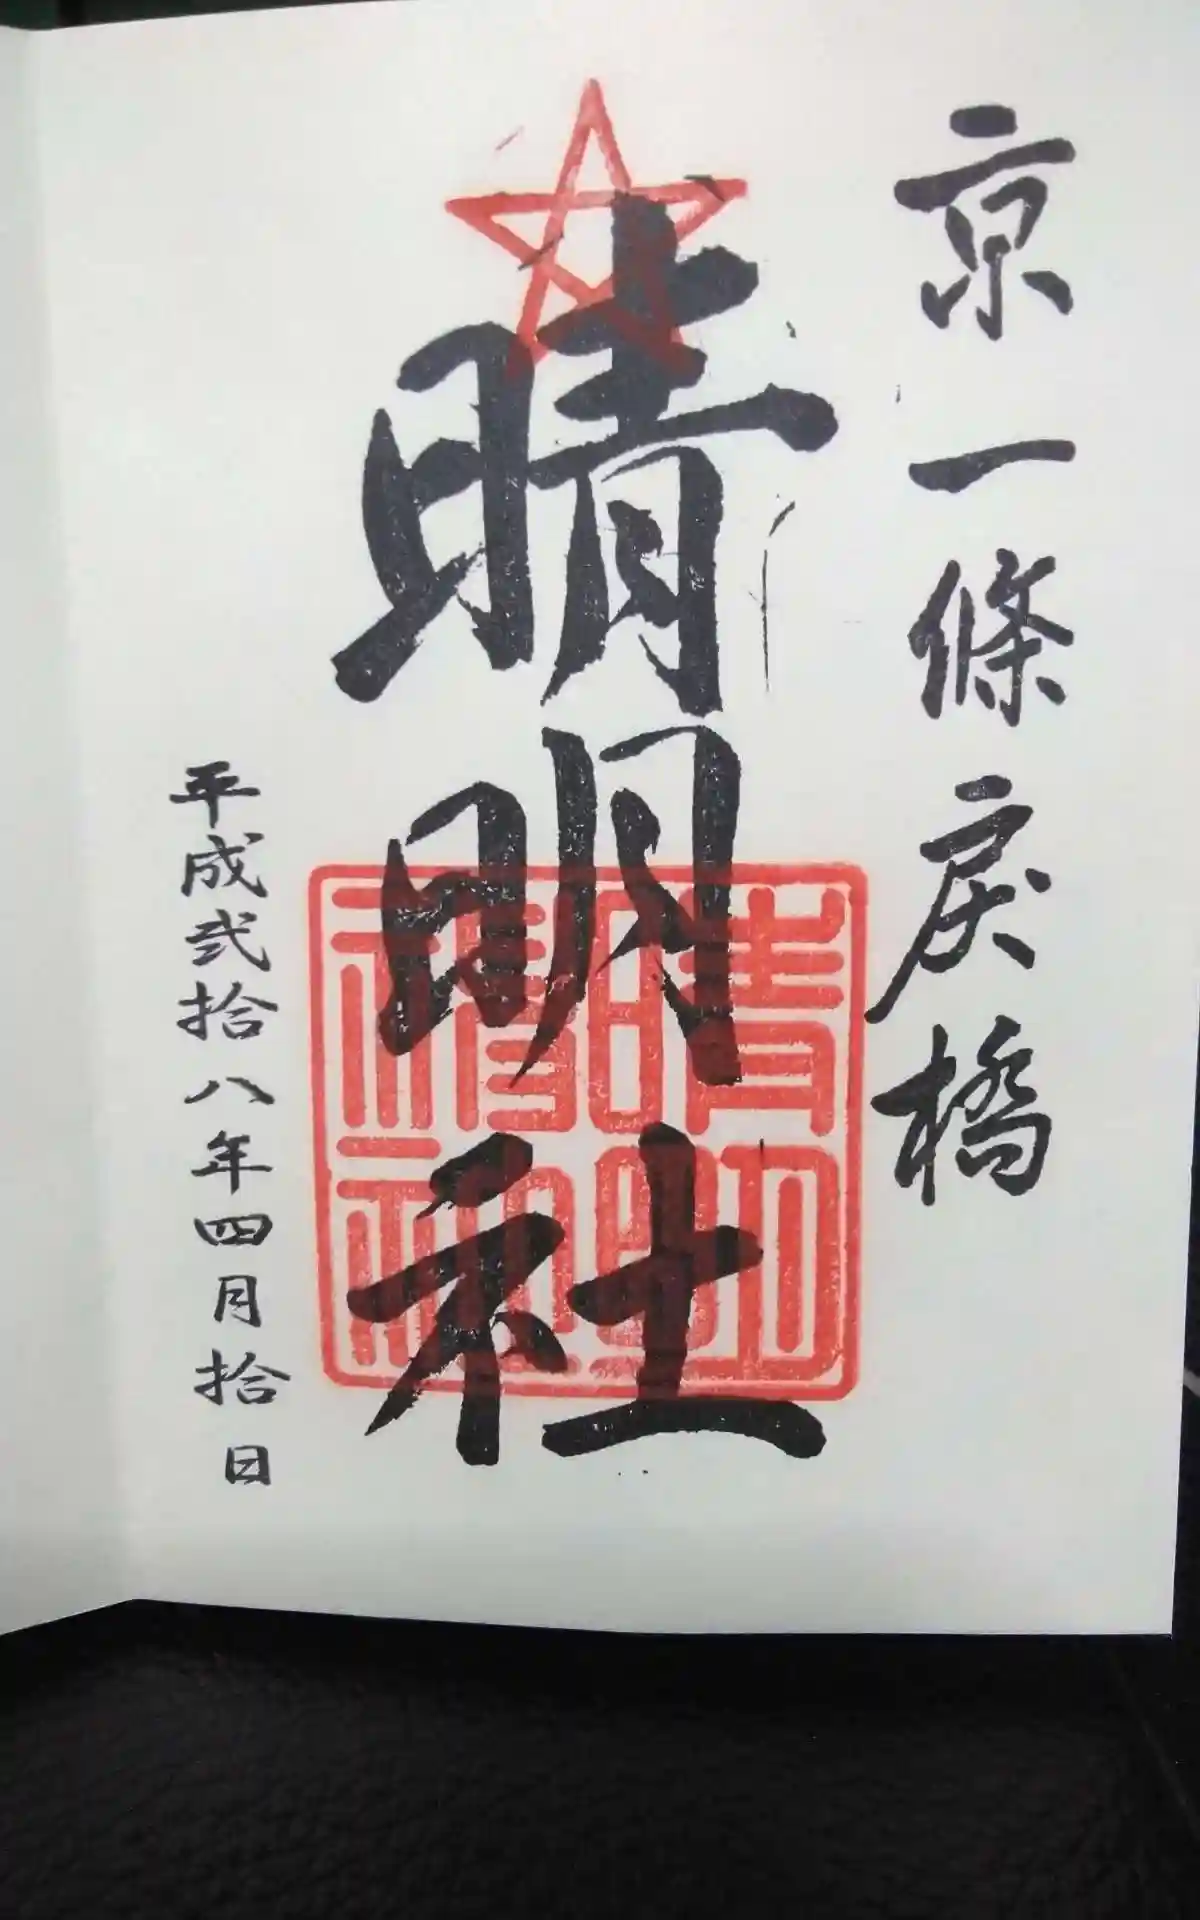 京一條戻橋
晴明社
晴明
神社
平成弐拾八年四月拾日